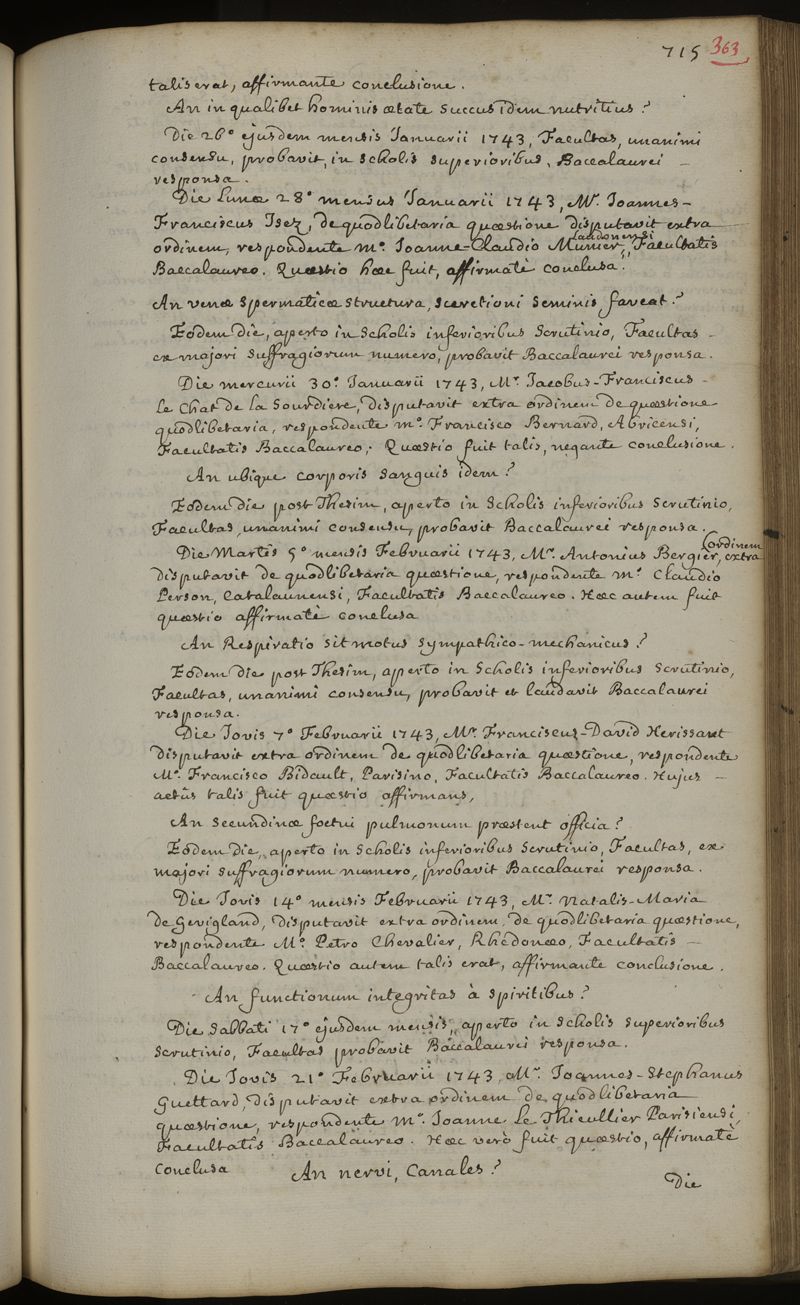 715 363
talis erat, affirmante conclusione.
An in qualibet hominis ætate succus idem nutritius?
Die 26° ejusdem mensis Januarii 1743, Facultas, unanimi
consensu, probavit, in scholis superioribus, Baccalaurei –
responsa.
Die Lunæ 28° mensus Januarii 1743, Mr. Joannes-
Franciscus Isez, de quodlibetaria quæstione disputavit extra
ordinem, respondente m°. Joanne-Claudio Munier, laudonensi, Facultatis
Baccalaureo. Quæstio hæc fuit, affirmatè conclusa.
An venæ spermaticæ structura, secretioni seminis faveat?
Eodem die, aperto in scholis inferioribus scrutinio, Facultas –
ex majori suffragiorum numero, probavit Baccalaurei responsa.
Die mercurii 30°. Januarii 1743, Mr. Jacobus-Franciscus –
Le Chat de la Sourdiere, disputavit extra ordinem de quæstione
quodlibetaria, respondente m°. Francisco Bernard, Abricensi,
Facultatis Baccalaureo; Quæstio fuit talis, negante conclusione.
An ubique corporis sanguis idem?
Eodem die post Thesim, aperto in scholis inferioribus scrutinio,
Facultas, unanimi consensu, probavit Baccalaurei responsa.
Die Martis 5° mensis Februarii 1743, Mr. Antonius Bergier, extra ordinem
disputavit de quodlibetaria quæstione, respondente m°. Claudio
Person, Catalaunensi, Facultatis Baccalaureo. Hæc autem fuit
quæstio affirmatè conclusa
An Respiratio sit motus sympathico-mechanicus?
Eodem die post Thesim, aperto in scholis inferioribus scrutinio,
Facultas, unanimi consensu, probavit et laudavit Baccalaurei
responsa.
Die Jovis 7° Februarii 1743, Mr. Franciscus-David Herissant
disputavit extra ordinem de quodlibetaria quæstione, respondente
M°. Francisco Bidault, Parisino, Facultatis Baccalaureo. Hujus –
actûs talis fuit quæstio affirmans,
An secundinæ foetui pulmonum præstent officia?
Eodem die, aperto in scholis inferioribus scrutinio, Facultas, ex
majori suffragiorum numero, probavit Baccalaurei responsa.
Die Jovis 14° mensis Februarii 1743, Mr. Natalis-Maria
de Gevigland, disputavit extra ordinem, de quodlibetaria quæstione,
respondente M°. Petro Chevalier, Rhedonæo, Facultatis –
Baccalaureo. Quæstio autem talis erat, affirmante conclusione.
An functionum integritas à spiritibus?
Die sabbati 17° ejusdem mensis, aperto in scholis superioribus
scrutinio, Facultas probavit Baccalaurei responsa.
Die Jovis 21° Februarii 1743, Mr. Joannes-Stephanus
Guettard, disputavit extra ordinem de quodlibetaria
quæstione, respondente m°. Joanne Le Thieullier Parisiensi,
Facultatis Baccalaureo. Hæc verò fuit quæstio, affirmatè
conclusa An nervi, Canales?
Die